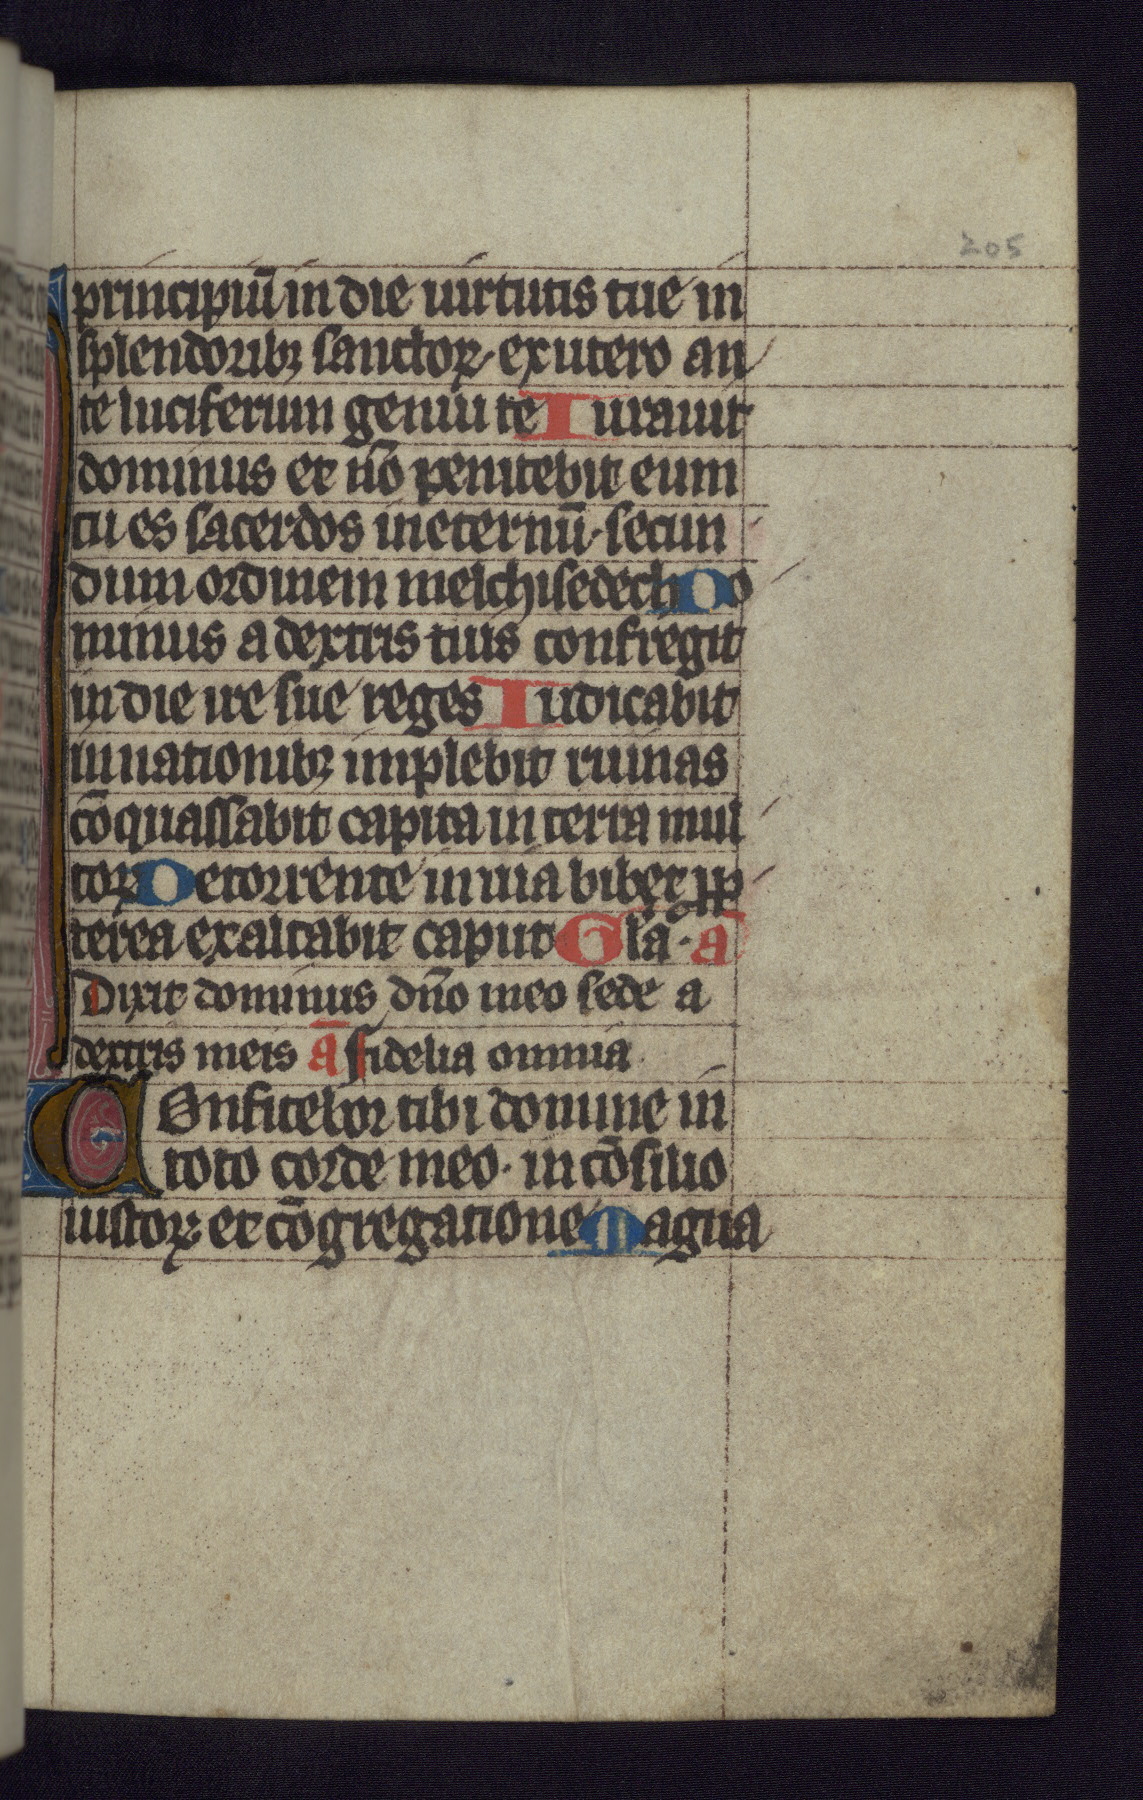 205
principiū in die uirtutis tue in
splendoribꝫ sanctoꝝ· ex utero an
te luciferum genui te Iurauit
dominus et nō penitebit eum
tu es sacerdos in eternū· secun
dum ordinem melchisedech Do
minus a dextris tuis confregit
in die ire sue reges Iudicabit
in nationibꝫ implebit ruinas
cōquassabit capita in terra mul
toꝝ De torrente in uia bibet ꝓp
terea exaltabit caput Glā· a
Dixit dominus dn̄o meo sede a
dextris meis ā fidelia omnia
Confitebor tibi domine in
toto corde meo· in cōsilio
iustoꝝ et cōgregatione Magna